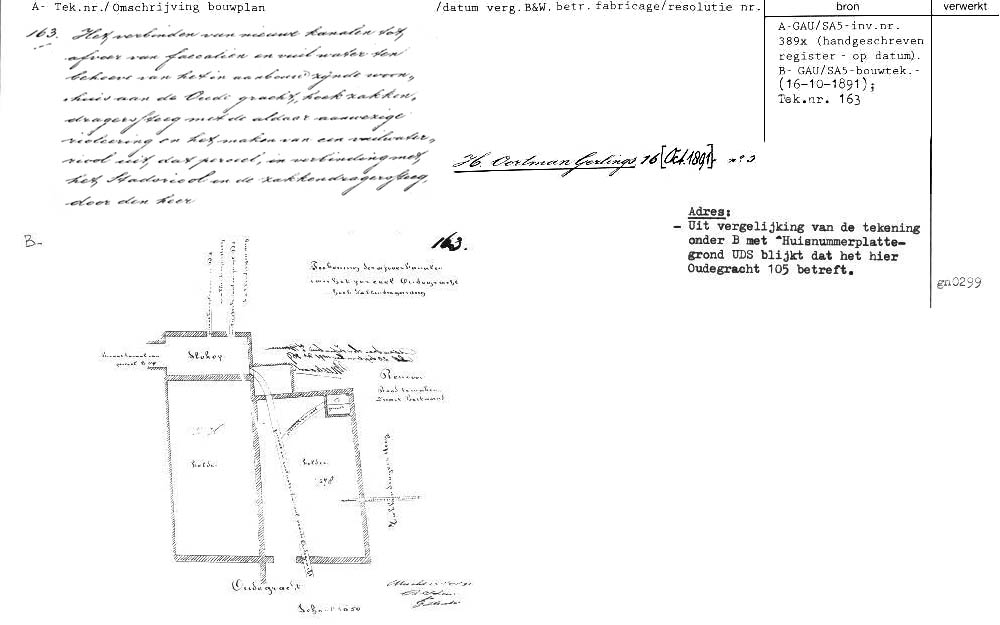 A- Tek.nr./ Omschrijving bouwplan
/datum verg. B&W. betr. fabricage/resolutie nr.
bron
verwerkt
163. Het verbinden van nieuwe kanalen tot
afvoer van faecaliën en vuil water ten
behoeve van het in aanbouw zijnde woon-
huis aan de Oude gracht, hoek zakken-
dragerssteeg met de aldaar aanwezige
rioleering en het maken van een vuilwater-
riool uit dat perceel, in verbinding met
het Stadsriool in de zakkendragerssteeg,
door den heer
H. Oortman Gerlings 16 [Oct. 1891] n° 3
A-GAU/SA5-inv.nr.
389x (handgeschreven
register - op datum).
B- GAU/SA5-bouwtek.-
(16-10-1891);
Tek.nr. 163
Adres:
- Uit vergelijking van de tekening
onder B met "Huisnummerplatte-
grond UDS blijkt dat het hier
Oudegracht 105 betreft.
gn0299
B-
163.
Teekening der afvoer kanalen
van het perceel Oudegracht
hoek Zakkendragersteeg
Slokop
Renvooi
Kelder
Kelder
Zakkendragersteeg
Oudegracht